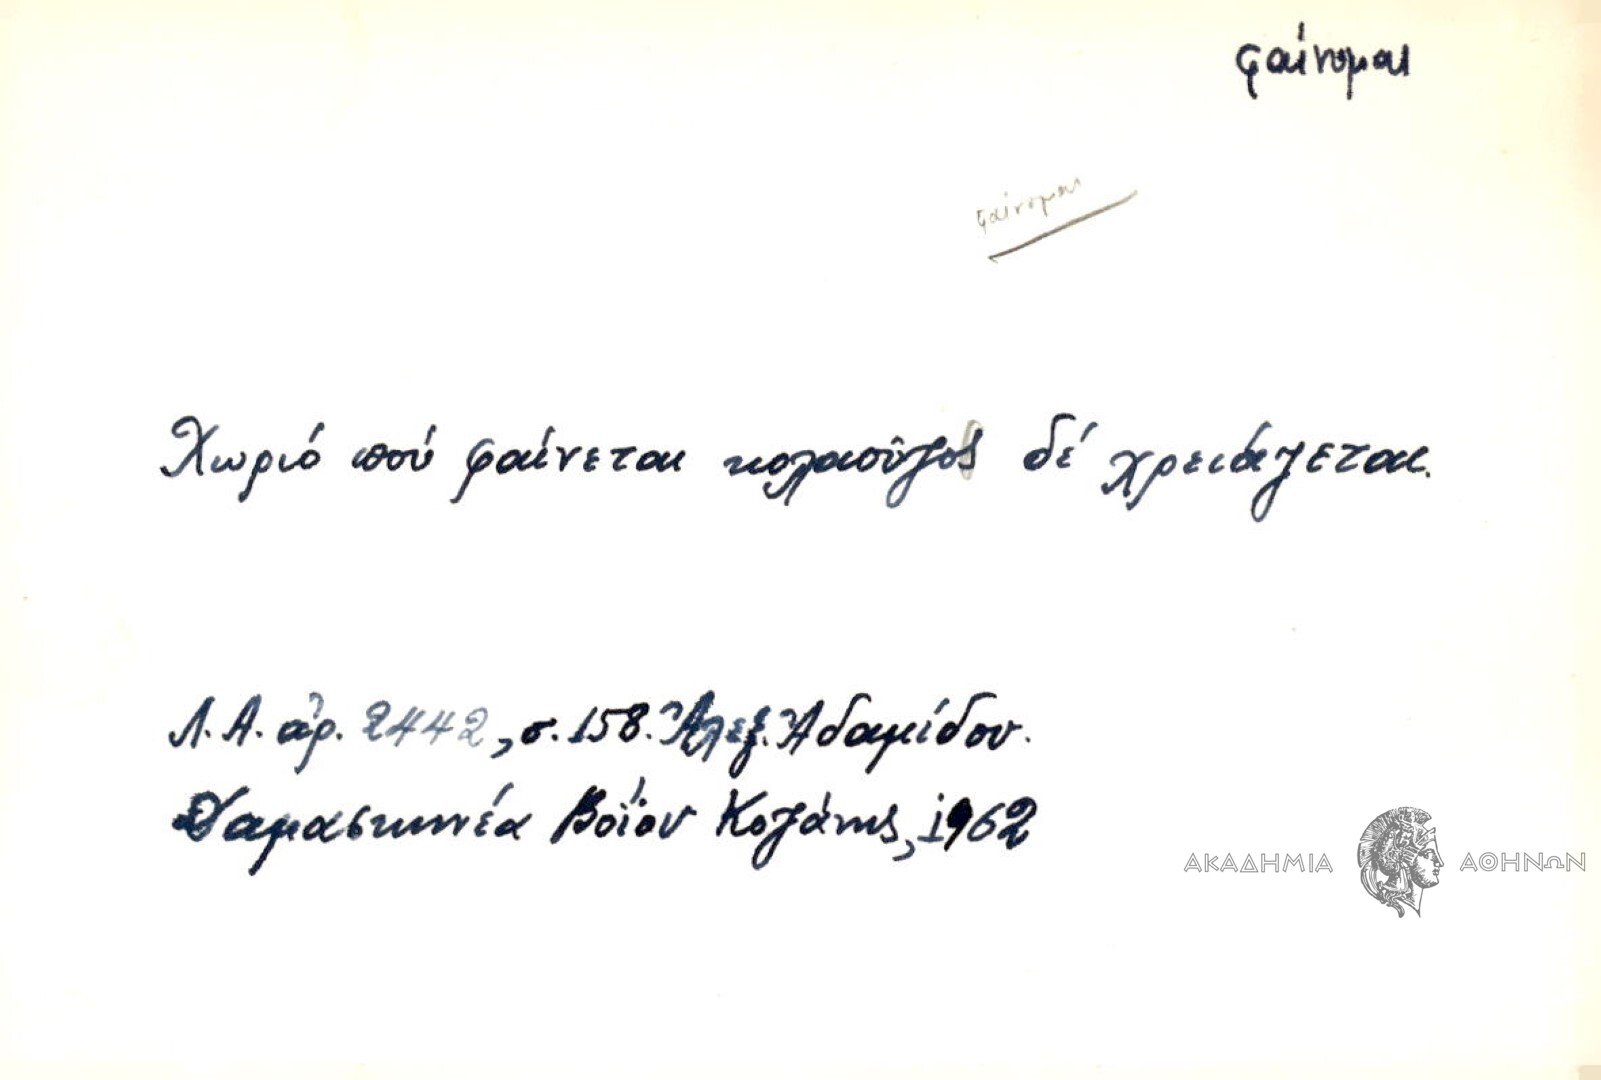 φαίνομαι
φαίνομαι
Χωριό πού φαίνεται κολαοῦζος δέ χρειάζεται.
Λ.Α. ἀρ. 2442, σ. 158. Ἀλεξ. Ἀδαμίδου.
Δαμασκηνέα Βοΐου Κοζάνης, 1962
ΑΚΑΔΗΜΙΑ ΑΘΗΝΩΝ